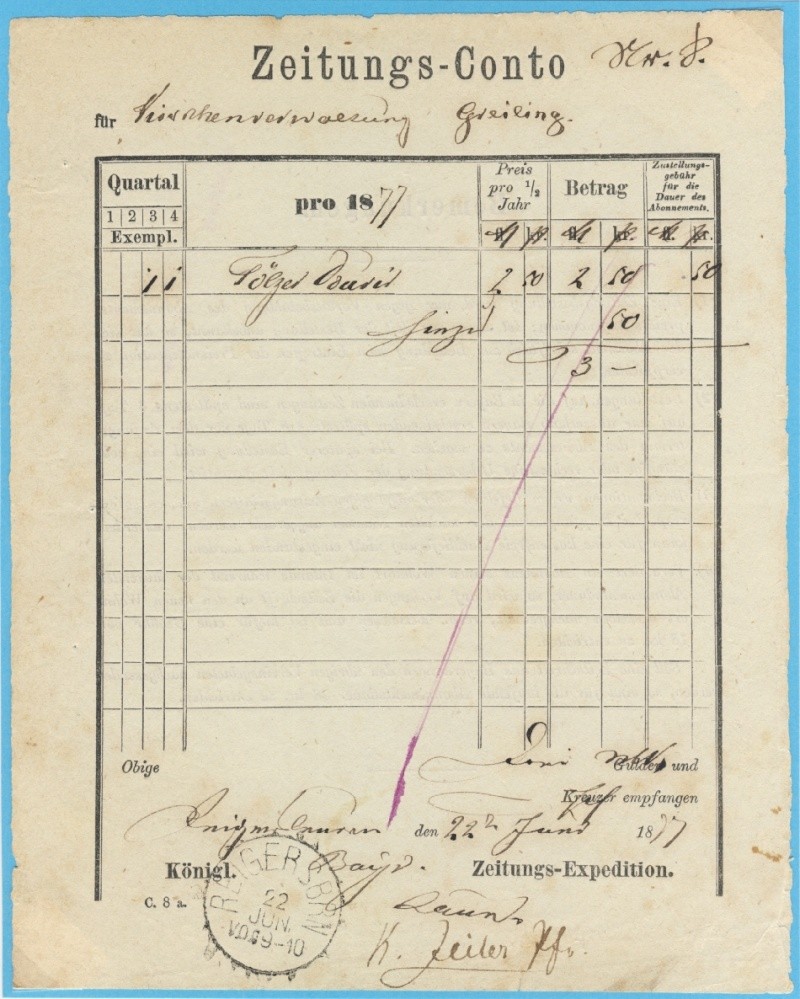 Zeitungs-Conto Nr. 8.
für Kirchenverwaltung Greiling.
Quartal
1 2 3 4
Exempl.
pro 1877
Preis pro 1/2 Jahr
Betrag
Zustellungs-gebühr für die Dauer des Abonnements.
1 1 Tölzer 2 50 2 50 50
hinzu 50
3 –
Obige Drei Gulden und
Kreuzer empfangen
den 22 Juni 1877
Königl. Bayr. Zeitungs-Expedition.
C. 8 a.
22
JUN.
9-10
K. Zeiler Pf.